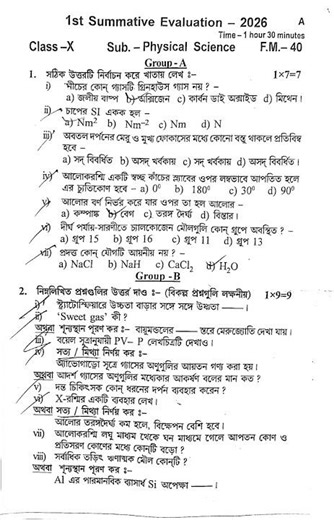 1st Summative Evaluation – 2026 A
Time – 1 hour 30 minutes
Class –X Sub. – Physical Science F.M.– 40
Group -A
1. সঠিক উত্তরটি নির্বাচন করে খাতায় লেখ :– 1×7=7
i) নীচের কোন্ গ্যাসটি গ্রিনহাউস গ্যাস নয় ? –
a) জলীয় বাষ্প b) অক্সিজেন c) কার্বন ডাই অক্সাইড d) মিথেন।
ii) চাপের SI একক হল –
a) Nm² b) Nm⁻² c) Nm d) N
iii) অবতল দর্পনের মেরু ও মুখ্য ফোকাসের মধ্যে কোনো বস্তু থাকলে প্রতিবিম্ব
হবে –
a) সদ্ বিবর্ধিত b) অসদ্ খর্বকায় c) সদ্ খর্বকায় d) অসদ্ বিবর্ধিত।
iv) আলোকরশ্মি একটি স্বচ্ছ কাঁচের স্ল্যাবের ওপর লম্বভাবে আপতিত হলে
এর চ্যুতিকোণ হবে – a) 0⁰ b) 180⁰ c) 30⁰ d) 90⁰
v) আলোর বর্ণ নির্ভর করে যার ওপর তা হল আলোর –
a) কম্পাঙ্ক b) বেগ c) তরঙ্গ দৈর্ঘ্য d) বিস্তার।
vi) দীর্ঘ পর্যায়-সারণীতে চ্যালকোজেন মৌলগুলি কোন্ গ্রুপে অবস্থিত ? –
a) গ্রুপ 15 b) গ্রুপ 16 c) গ্রুপ 11 d) গ্রুপ 13
vii) প্রদত্ত কোন্ যৌগটি আয়নীয় নয় ? –
a) NaCl b) NaH c) CaCl₂ d) H₂O
Group -B
2. নিম্নলিখিত প্রশ্নগুলির উত্তর দাও :– (বিকল্প প্রশ্নগুলি লক্ষনীয়) 1×9=9
i) স্ট্র্যাটোস্ফিয়ারে উচ্চতা বাড়ার সঙ্গে সঙ্গে উষ্ণতা —— ।
ii) ‘Sweet gas’ কী ?
অথবা শূন্যস্থান পূরণ কর :– বায়ুমণ্ডলের —— স্তরে মেরুজ্যোতি দেখা যায়।
iii) বয়েল সূত্রানুযায়ী PV– P লেখচিত্রটি দেখাও।
iv) সত্য / মিথ্যা নির্ণয় কর :–
অ্যাভোগাড্রো সূত্রে গ্যাসের অণুগুলির আয়তন গণ্য করা হয়।
অথবা আদর্শ গ্যাসের অণুগুলির মধ্যেকার আকর্ষণ বলের মান কত ?
v) দন্ত চিকিৎসক কোন্ ধরনের দর্পন ব্যবহার করেন ?
vi) X-রশ্মির একটি ব্যবহার লেখ।
অথবা সত্য / মিথ্যা নির্ণয় কর :–
আলোর তরঙ্গদৈর্ঘ্য কম হলে, বিক্ষেপন বেশি হবে।
vii) আলোকরশ্মি লঘু মাধ্যম থেকে ঘন মাধ্যমে গেলে আপতন কোণ ও
প্রতিসরণ কোণের মধ্যে কোন্‌টি বড়ো ?
viii) সর্বাধিক তড়িৎ ঋণাত্মক মৌল কোন্‌টি ?
অথবা শূন্যস্থান পূরণ কর :–
Al এর পারমানবিক ব্যাসার্ধ Si অপেক্ষা —— ।